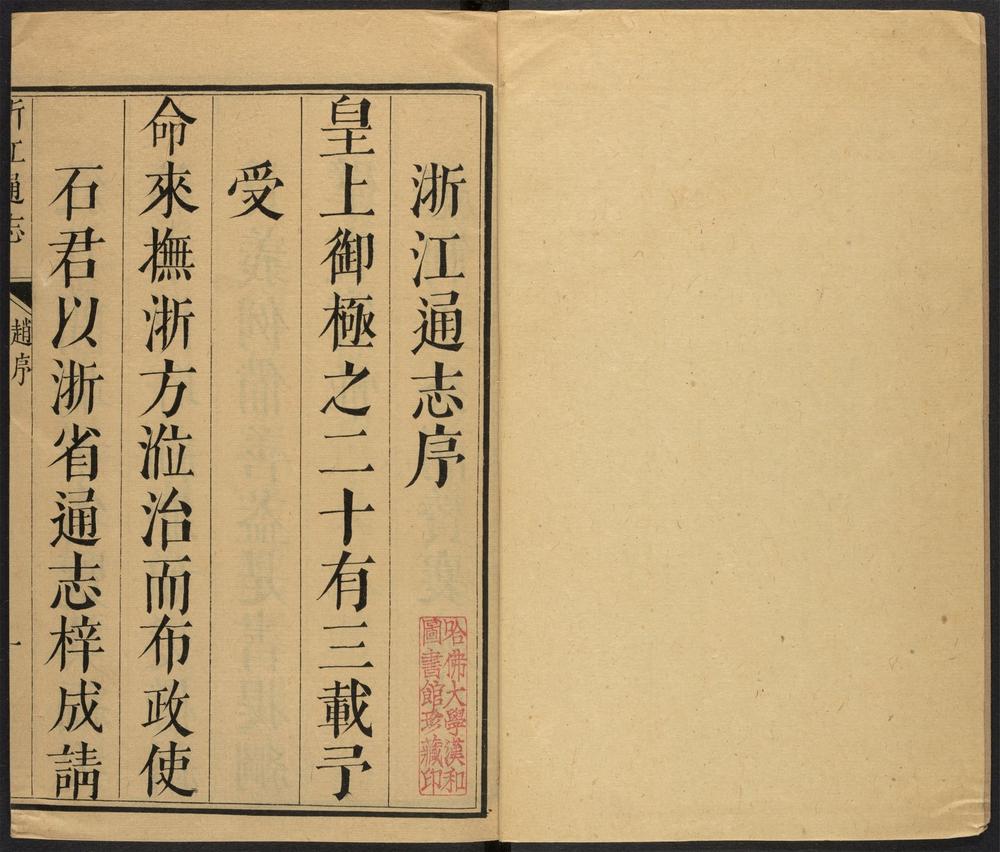 浙江通志序
皇上御極之二十有三載予
受
命來撫浙方涖治而布政使
石君以浙省通志梓成請
浙江通志
趙序
一
哈佛大學漢和
圖書館珍藏印